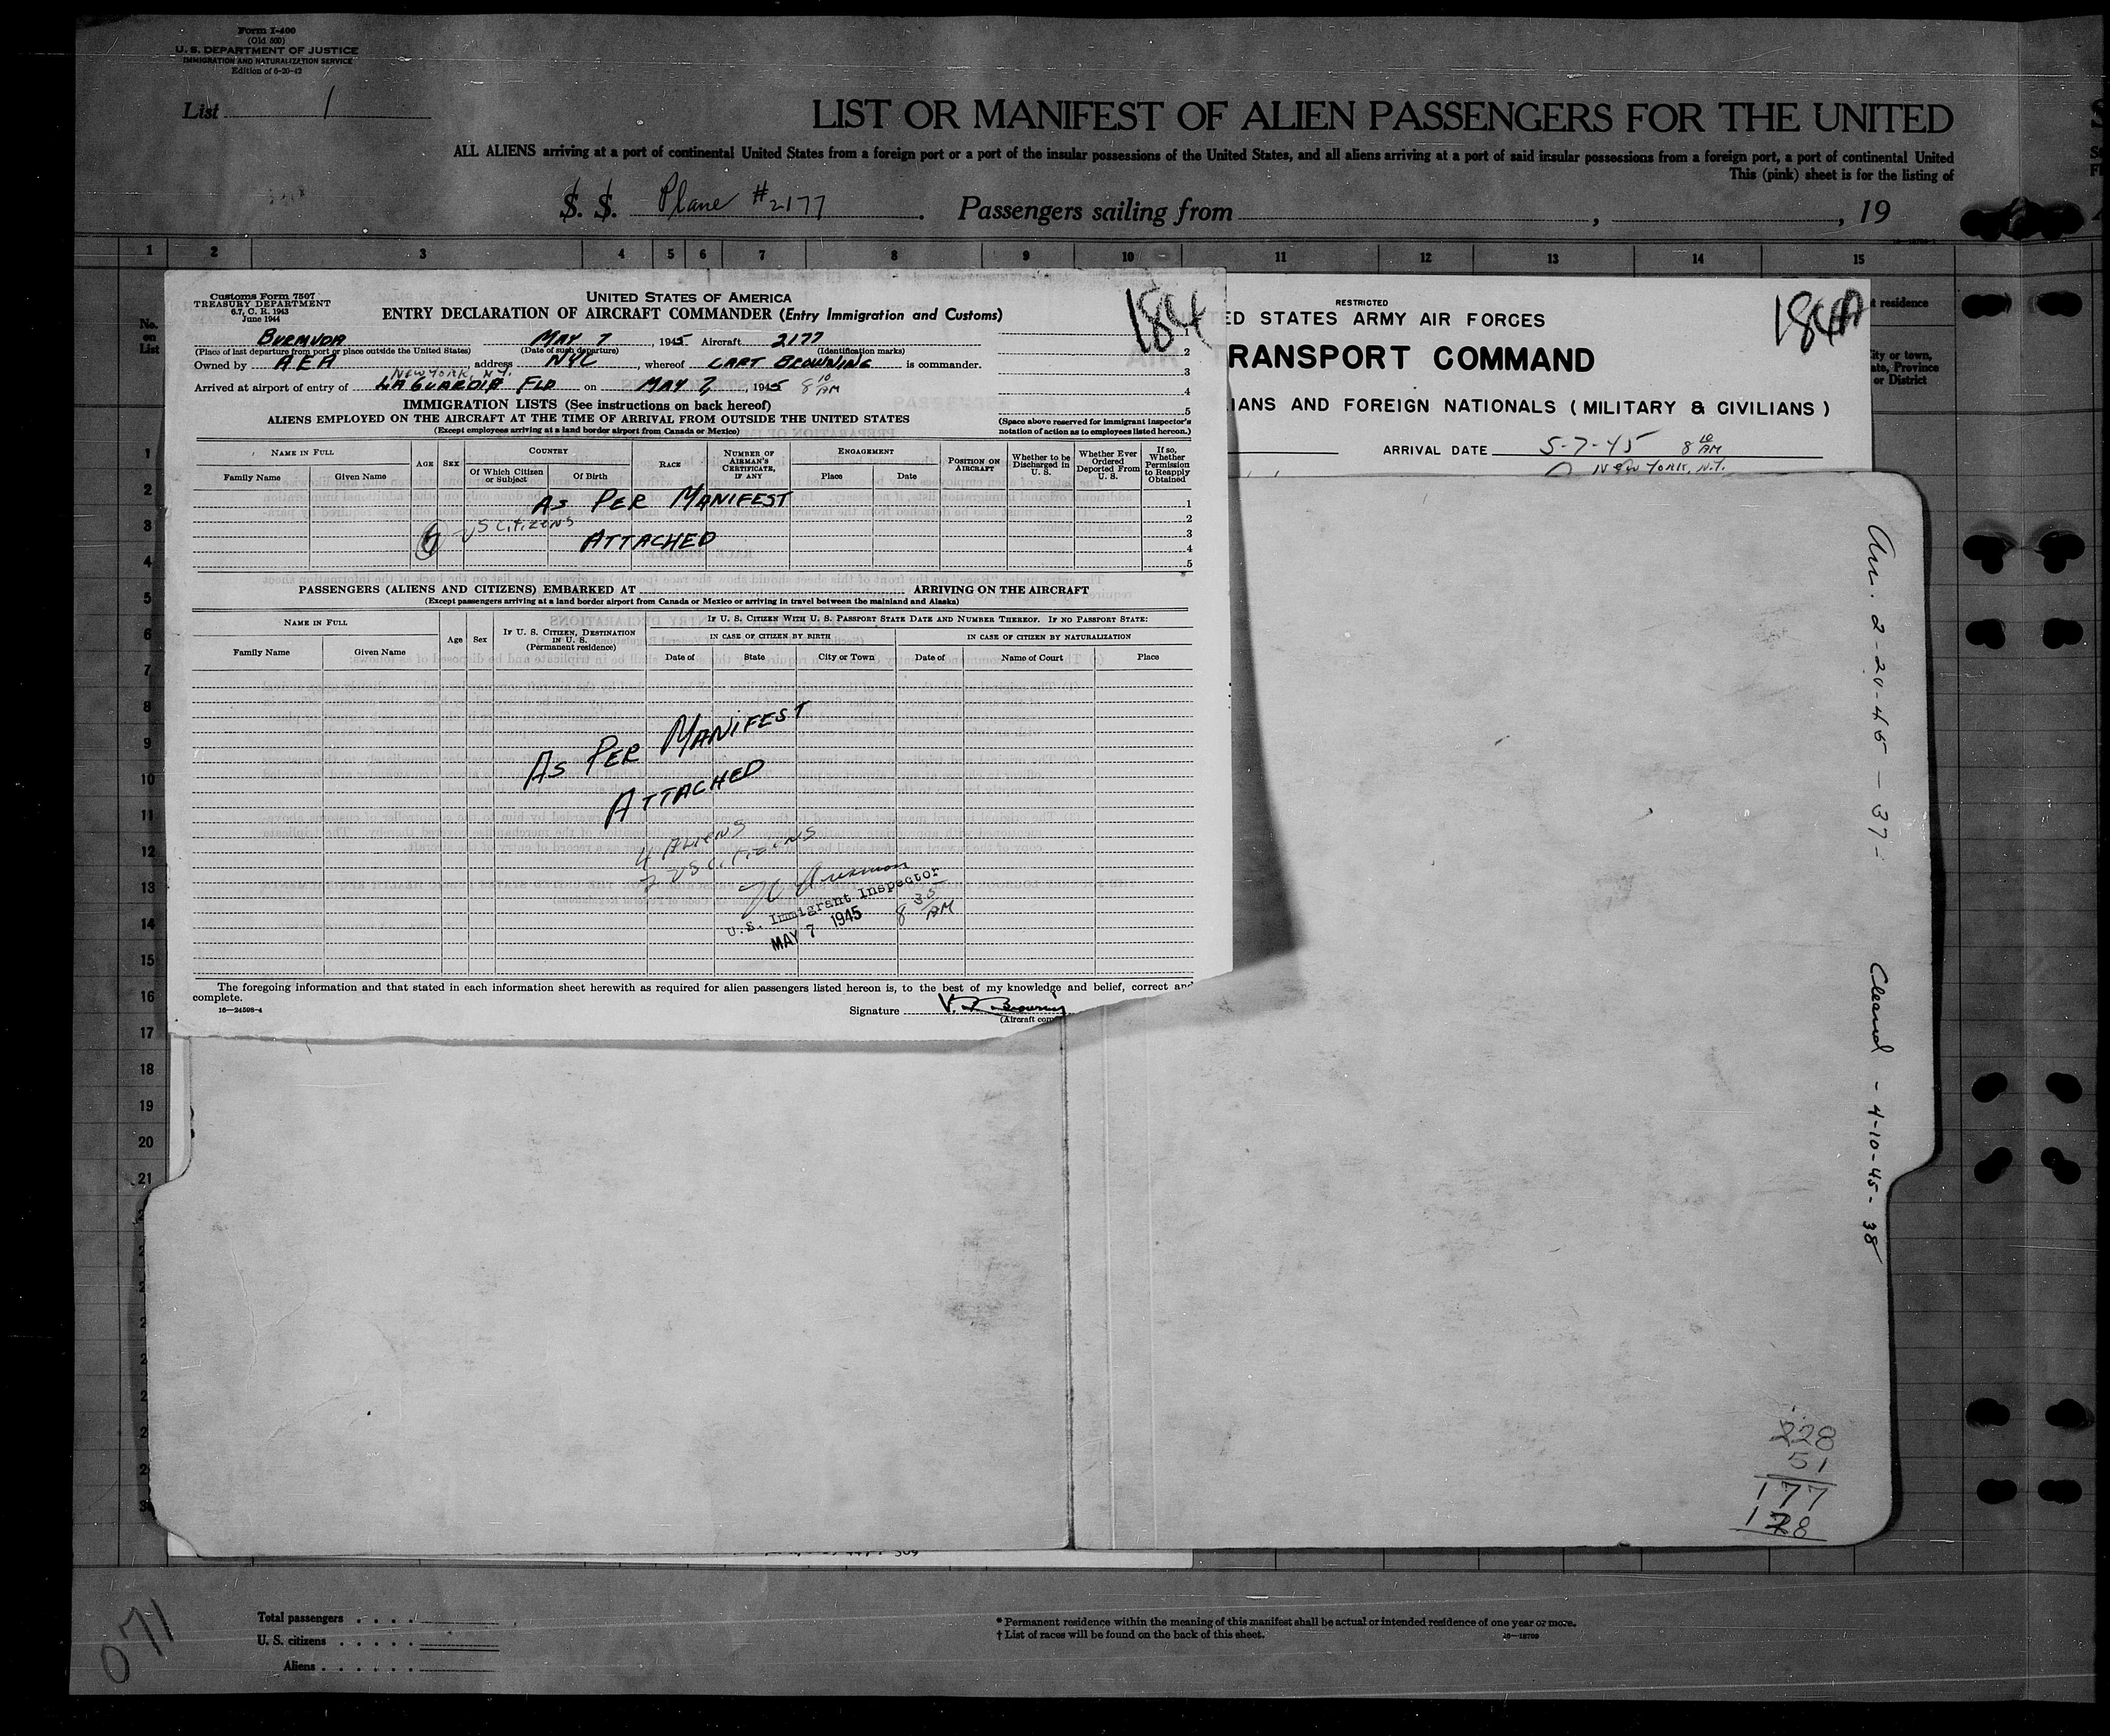 Form I-400
(Old 500)
U. S. DEPARTMENT OF JUSTICE
IMMIGRATION AND NATURALIZATION SERVICE
Edition of 6-20-42
List 1
LIST OR MANIFEST OF ALIEN PASSENGERS FOR THE UNITED
ALL ALIENS arriving at a port of continental United States from a foreign port or a port of the insular possessions of the United States, and all aliens arriving at a port of said insular possessions from a foreign port, a port of continental United
This (pink) sheet is for the listing of
S. S. Plane #2177. Passengers sailing from , , 19
1 2 3 4 5 6 7 8 9 10 11 12 13 14 15
No. on List
Customs Form 7507
TREASURY DEPARTMENT
6.7, C. R. 1943
June 1944
UNITED STATES OF AMERICA
ENTRY DECLARATION OF AIRCRAFT COMMANDER (Entry Immigration and Customs)
184
BERMUDA MAY 7, 1945 Aircraft 2177
(Place of last departure from port or place outside the United States) (Date of such departure) (Identification marks)
Owned by AEA address NYC, whereof CAPT BROWNING is commander.
NEW YORK, N.Y.
Arrived at airport of entry of LA GUARDIA FLD on MAY 7, 1945 8 10 AM
IMMIGRATION LISTS (See instructions on back hereof)
ALIENS EMPLOYED ON THE AIRCRAFT AT THE TIME OF ARRIVAL FROM OUTSIDE THE UNITED STATES
(Except employees arriving at a land border airport from Canada or Mexico)
1
2
3
4
5
(Space above reserved for immigrant inspector's
notation of action as to employees listed hereof.)
NAME IN FULL
Family Name Given Name
AGE SEX
COUNTRY
Of Which Citizen or Subject Of Birth
RACE
NUMBER OF AIRMAN'S CERTIFICATE, IF ANY
ENGAGEMENT
Place Date
POSITION ON AIRCRAFT
Whether to be Discharged in U. S.
Whether Ever Ordered Deported From U. S.
If so, Whether Permission to Reapply Obtained
AS PER MANIFEST
US CITIZENS
ATTACHED
1
2
3
4
5
PASSENGERS (ALIENS AND CITIZENS) EMBARKED AT ARRIVING ON THE AIRCRAFT
(Except passengers arriving at a land border airport from Canada or Mexico or arriving in travel between the mainland and Alaska)
NAME IN FULL
Family Name Given Name
Age Sex
IF U. S. CITIZEN, DESTINATION IN U. S.
(Permanent residence)
IF U. S. CITIZEN WITH U. S. PASSPORT STATE DATE AND NUMBER THEREOF. IF NO PASSPORT STATE:
IN CASE OF CITIZEN BY BIRTH IN CASE OF CITIZEN BY NATURALIZATION
Date of State City or Town Date of Name of Court Place
AS PER MANIFEST
ATTACHED
4 ALIENS
7 US CITIZENS
U.S. Immigrant Inspector
MAY 7 1945 8 35 AM
The foregoing information and that stated in each information sheet herewith as required for alien passengers listed hereon is, to the best of my knowledge and belief, correct and
complete.
16—24598-4
Signature V. Browning
(Aircraft com
RESTRICTED
184A
ED STATES ARMY AIR FORCES
RANSPORT COMMAND
IANS AND FOREIGN NATIONALS (MILITARY & CIVILIANS)
ARRIVAL DATE 5-7-45 8 10 AM
NEW YORK, N.Y.
residence
ity or town,
ate, Province
or District
1
2
3
4
5
6
7
8
9
10
11
12
13
14
15
16
17
18
19
20
21
Arr. 2-20-45-37-
Cleared - 4-10-45-38
228
51
177
128
071
Total passengers
U. S. citizens
Aliens
* Permanent residence within the meaning of this manifest shall be actual or intended residence of one year or more.
† List of races will be found on the back of this sheet.